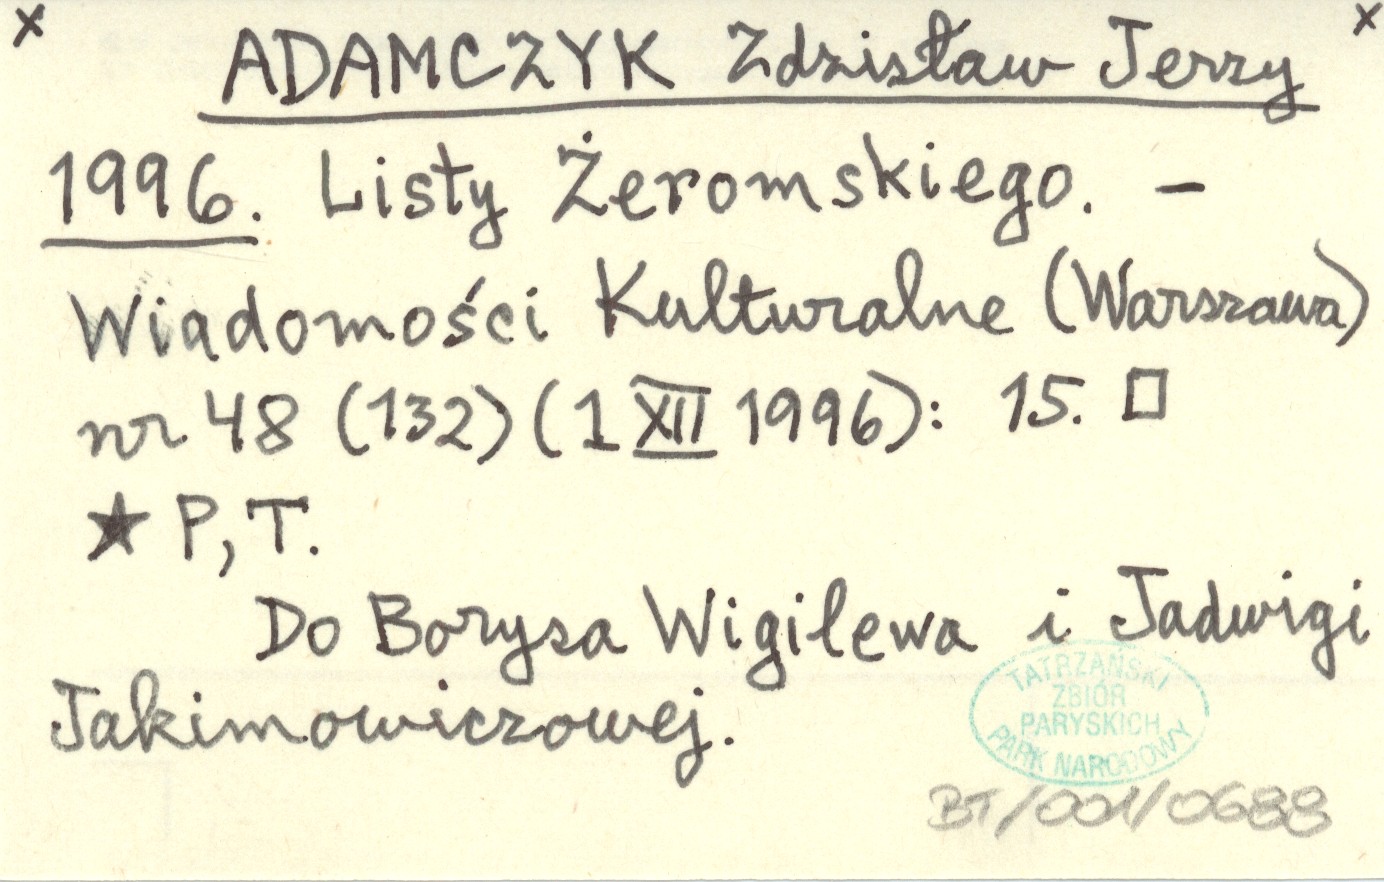 x ADAMCZYK Zdzisław Jerzy x
1996. Listy Żeromskiego. –
Wiadomości Kulturalne (Warszawa)
nr 48 (132) (1 XII 1996): 15. □
★ P, T.
Do Borysa Wigilewa i Jadwigi
Jakimowiczowej.
TATRZAŃSKI
ZBIÓR
PARYSKICH
PARK NARODOWY
BT/001/0688